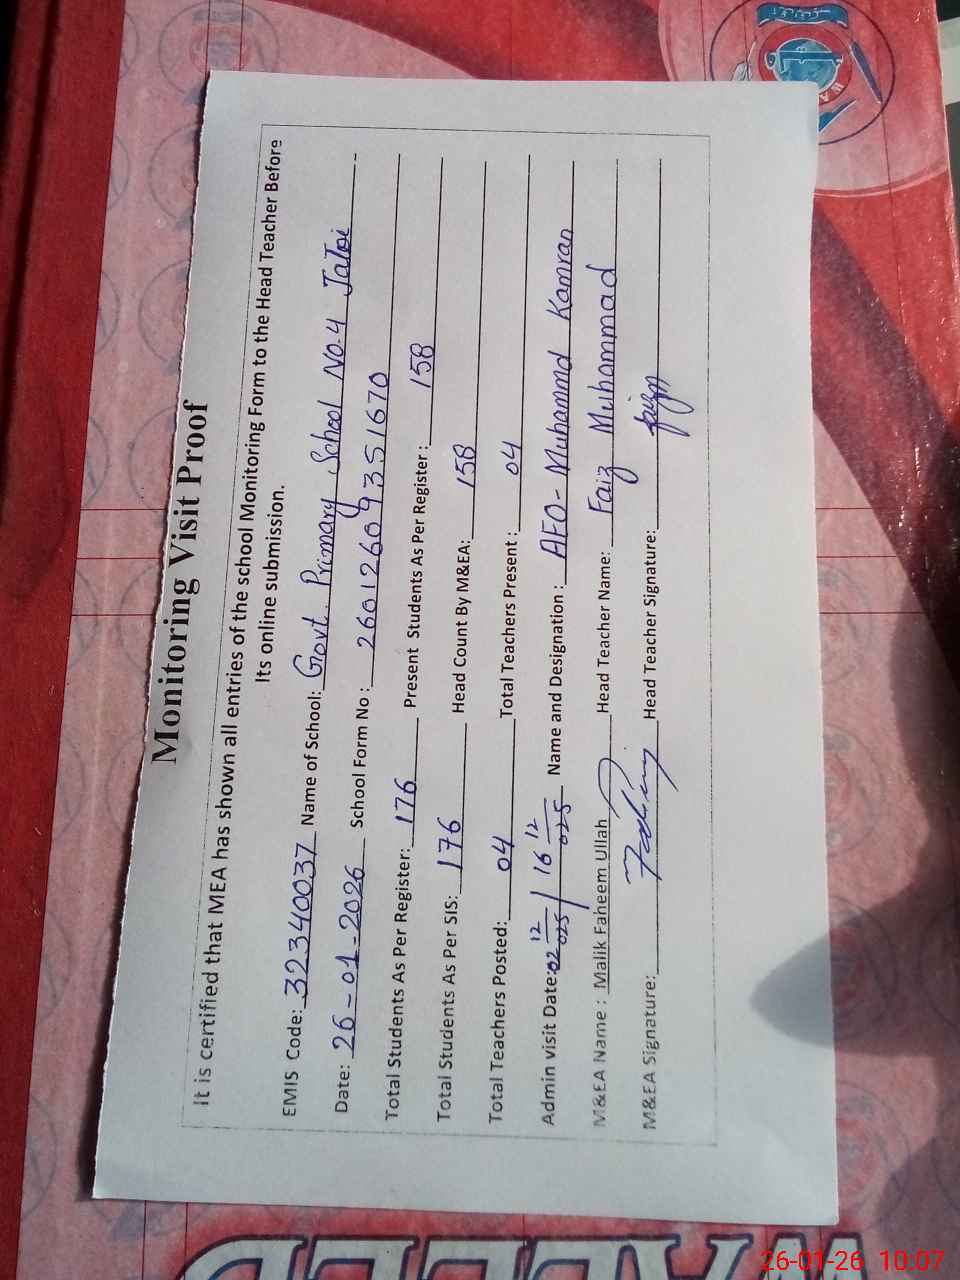 Monitoring Visit Proof
It is certified that MEA has shown all entries of the school Monitoring Form to the Head Teacher Before
Its online submission.
EMIS Code: 32340037 Name of School: Govt. Primary School No.4 Jatoi
Date: 26-01-2026 School Form No: 2601260935 1670
Total Students As Per Register: 176 Present Students As Per Register: 158
Total Students As Per SIS: 176 Head Count By M&EA: 158
Total Teachers Posted: 04 Total Teachers Present: 04
Admin visit Date: 02 12 025 / 16 12 025 Name and Designation: AEO- Muhammd Kamran
M&EA Name: Malik Faheem Ullah Head Teacher Name: Faiz Muhammad
M&EA Signature: Head Teacher Signature:
26-01-26 10:07